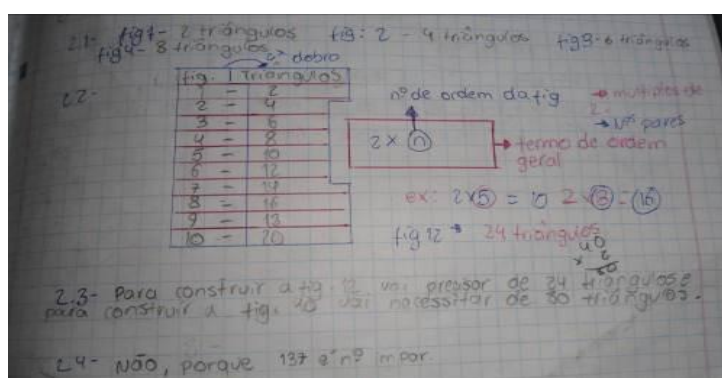 2.1- fig1- 2 triângulos fig: 2 - 4 triângulos fig3- 6 triângulos
fig4- 8 triângulos
dobro
fig. | Triângulos
1 - 2
2 - 4
3 - 6
4 - 8
5 - 10
6 - 12
7 - 14
8 - 16
9 - 18
10 - 20
2.2-
nº de ordem da fig
2 × n
→ multiplos de 2
→ nos pares
→ termo de ordem geral
ex: 2×5 = 10 2×8=16
fig 12 → 24 triângulos
40
× 2
80
2.3- Para construir a fig. 12 vai precisar de 24 triângulos e
para construir a fig. 40 vai necessitar de 80 triângulos.
2.4- Não, porque 137 é nº impar.